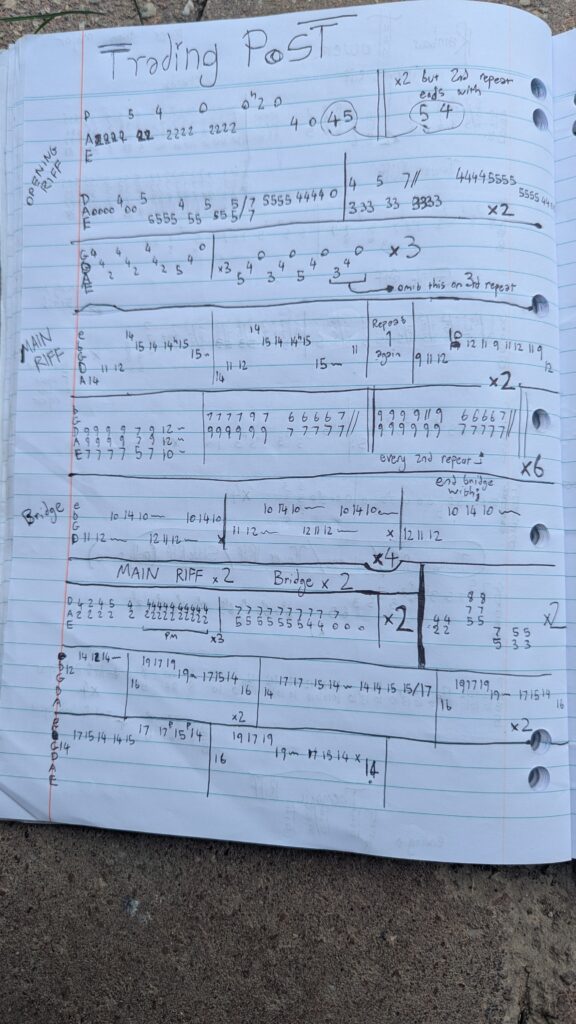 Trading PoST
OPENING RIFF
D 5 4 0 0ʰ2 0
A 2222 22 2222 2222 4 0 45
E
x2 but 2nd repeat
ends with
5 4
D 4 5 4 5 5/7 5555 4444 0
A 0000 00
E 6555 55 55 5/7
4 5 7// 44445555
333 33 333
x2
G 4 4 4 0
D
A
E
x3
4 0 4 0 4 0 0
5 4 3 4 5 4 3
x3
omit this on 3rd repeat
MAIN RIFF
e
B 14 15 14 14ʰ15
G 15~
D 11 12
A 14
14
15 14 14ʰ15
11 12 15~ 11
14
Repeat
1
again
10
12 11 9 11 12 11 9
9 11 12 12
x2
b
G
D 9 9 9 9 7 9 12~
A 9 9 9 9 7 9 12~
E 7 7 7 7 5 7 10~
7 7 7 7 9 7 6 6 6 6 7//
9 9 9 9 9 9 7 7 7 7 7//
9 9 9 9 11 9 6 6 6 6 7//
9 9 9 9 9 9 7 7 7 7 7//
every 2nd repeat
x6
Bridge
e
b 10 14 10~ 10 14 10
G
D 11 12~ 12 11 12~ x
10 14 10~ 10 14 10~
11 12~ 12 11 12~ x
end bridge
with
10 14 10~
12 11 12
x4
MAIN RIFF x2 Bridge x2
D 4 2 4 5 4 4444444444
A 2 2 2 2 2 2222222222
E
PM x3
7 7 7 7 7 7 7 7 7
5 5 5 5 5 5 5 4 4 0 0 0
x2
8 8
7 7
44 55
22
7 55
5 33
x2
e 14 12 14~
b 12
G
D
A
E
19 17 19
19~ 17 15 14
16 16
x2
17 17 15 14~ 14 14 15 15/17
14
19 17 19
19~ 17 15 14
16 16
x2
e 17 15 14 14 15 17 17ᵖ15ᵖ14
G 14
D
A
E
19 17 19
16 19~ 17 15 14 x
14